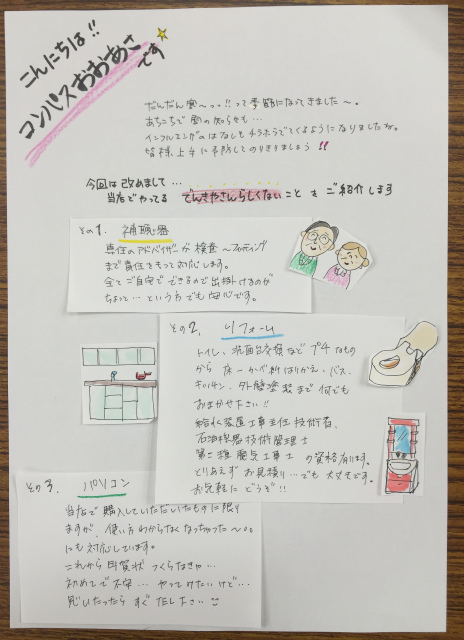 こんにちは!!
コンパスおおあさです
だんだん寒〜ぃ..!!って季節になってきました〜。
あちこちで雪の知らせも...
インフルエンザのはなしもチラホラでてくるようになりましたね。
皆様上手に予防してのりきりましょう!!
今回は改めまして...
当店でやってるでんきやさんらしくないことをご紹介します
その1. 補聴器
専任のアドバイザーが検査〜フィッティング
まで責任をもって対応します。
全てご自宅でできるので出掛けるのが
ちょっと...という方でも安心です。
その2. リフォーム
トイレ、洗面台交換などプチなもの
から床・かべ紙はりかえ、バス、
キッチン、外壁塗装まで何でも
おまかせ下さい!!
給水装置工事主任技術者、
石油機器技術管理士
第二種電気工事士の資格有ります。
とりあえずお見積り...でも大丈夫です。
お気軽にどうぞ!!
その3. パソコン
当店で購入していただいたものに限り
ますが、使い方わからなくなっちゃった〜。。
にも対応しています。
これから年賀状つくらなきゃ...
初めてで不安...やってみたいけど...
思いたったらすぐTEL下さい